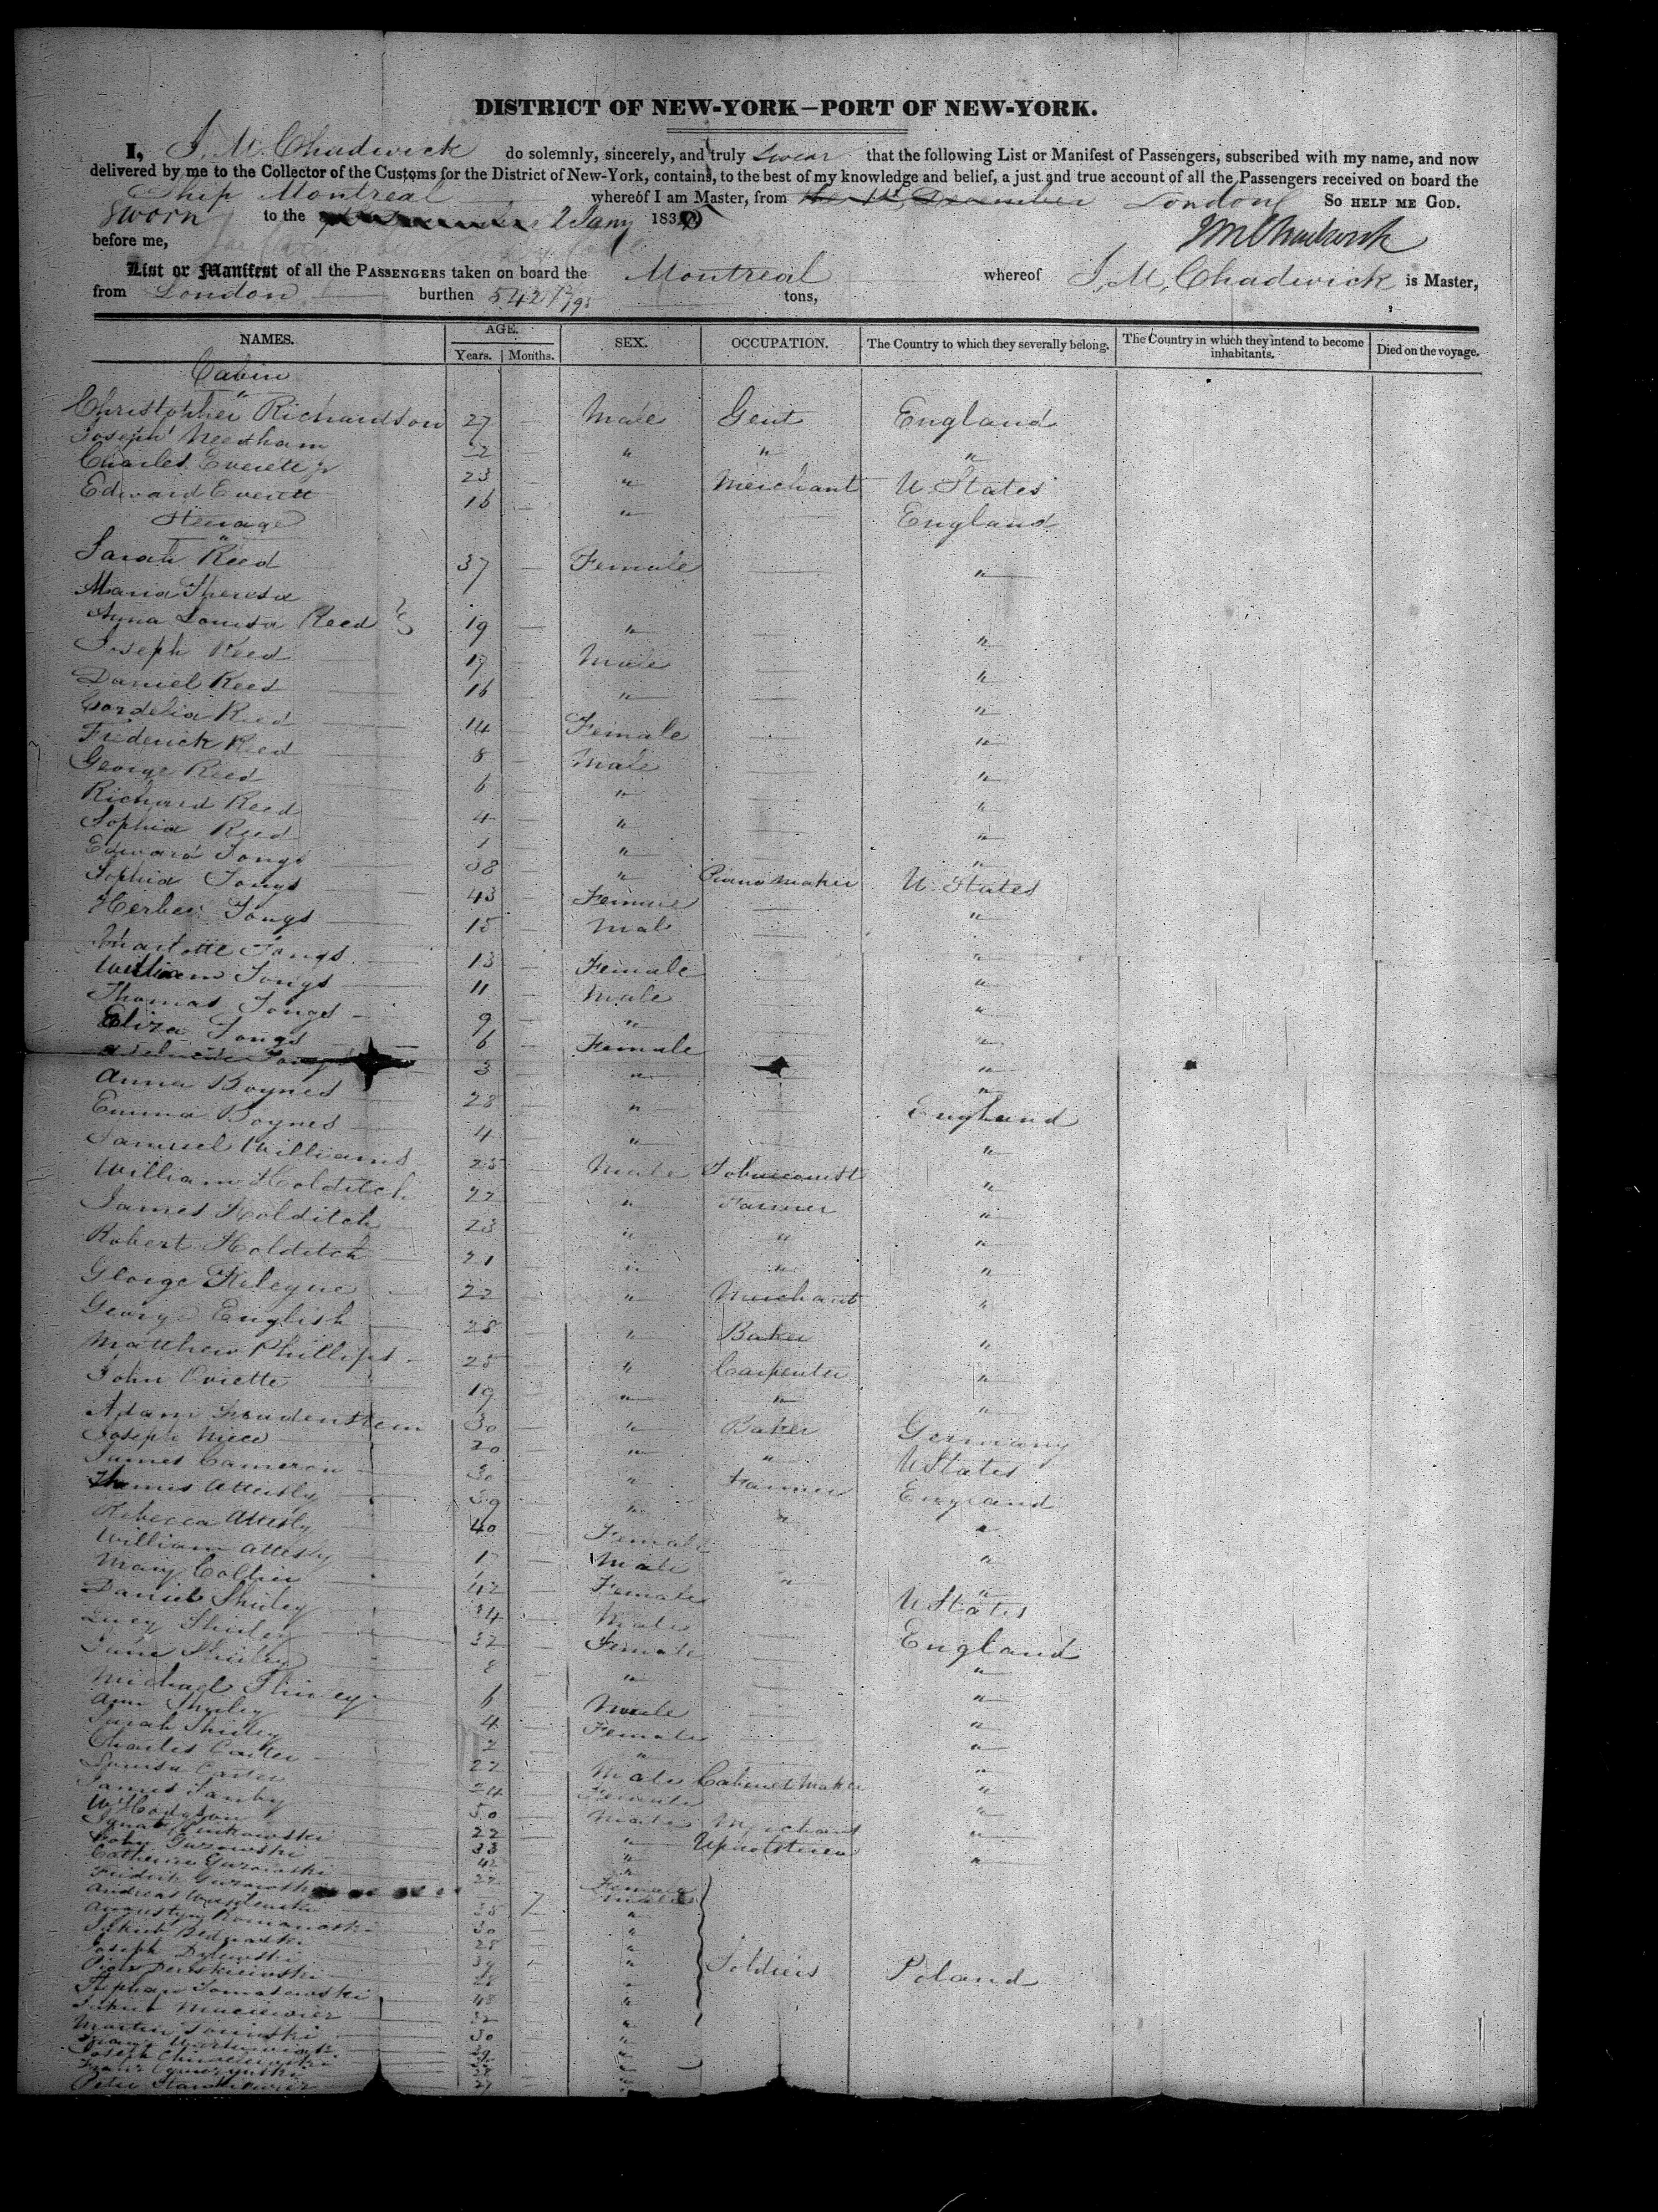 DISTRICT OF NEW-YORK—PORT OF NEW-YORK.
I, J. M. Chadwick do solemnly, sincerely, and truly Swear that the following List or Manifest of Passengers, subscribed with my name, and now
delivered by me to the Collector of the Customs for the District of New-York, contains, to the best of my knowledge and belief, a just and true account of all the Passengers received on board the
Ship Montreal whereof I am Master, from the 1st December London So HELP ME GOD.
Sworn to the 2 Jany 183
before me, JM Chadwick
List or Manifest of all the PASSENGERS taken on board the Montreal whereof J. M. Chadwick is Master,
from London burthen 542 tons,
NAMES. AGE. Years. Months. SEX. OCCUPATION. The Country to which they severally belong. The Country in which they intend to become inhabitants. Died on the voyage.
Cabin
Christopher Richardson 27 — Male Gent England
Joseph Needham — " " "
Charles Everett Jr 23 — " Merchant U. States
Edward Everett 16 — " — England
Steerage
Sarah Reed 37 — Female — "
Maria Theresa
Anna Louisa Reed 19 — " — "
Joseph Reed 17 — Male — "
Daniel Reed 16 — " — "
Cordelia Reed 14 — Female — "
Frederick Reed 8 — Male — "
George Reed 6 — " — "
Richard Reed 4 — " — "
Sophia Reed 1 — " — "
Edward Tongs 38 — " Piano maker U. States
Sophia Tongs 43 — Female — "
Herber Tongs 15 — Male — "
Charlotte Tongs 13 — Female — "
William Tongs 11 — Male — "
Thomas Tongs 9 — " — "
Eliza Tongs 6 — Female — "
Tongs 3 — " — "
Anna Boynes 28 — " — England
Emma Boynes 4 — " — "
Samuel Williams 25 — Male Tobacconist "
William Holditch 22 — " Farmer "
James Holditch 23 — " " "
Robert Holditch 21 — " " "
George 22 — " Merchant "
George English 28 — " Baker "
Matthew Phillips 25 — " Carpenter "
John Oviette 19 — " " "
Adam 30 — " Baker Germany
Joseph 20 — " " U States
James Cameron 30 — " Farmer England
Thomas Attersly 39 — " " "
Rebecca Attersly 40 — Female "
William Attersly 1 — Male " "
Mary Collier 42 — Female — U States
Daniel Shirley 34 — Male — England
Lucy Shirley 32 — Female — "
Jane Shirley 8 — " — "
Michael Shirley 6 — Male — "
Ann Shirley 4 — Female — "
Sarah Shirley 2 — " — "
Charles Carter 22 — Male Cabinet Maker "
Louisa Carter 24 — Female "
James 50 — Male Merchant "
Wm Hodgson 22 — " Upholsterer "
Ignatz 33 "
John Gurowski 42 "
Catherine Gurowski 27 Female
Fredrik Gurowski 7 Male
Andreas 35 "
Augustyn Romanoski 30 "
Jakub Bednarski 28 "
Joseph 39 " Soldiers Poland
Piotr 28 "
Stephan Tomaszewski 48 "
Jakub Maciewicz 32 "
Martin 30 "
Franz "
Joseph "
Franz "
Peter 27 "